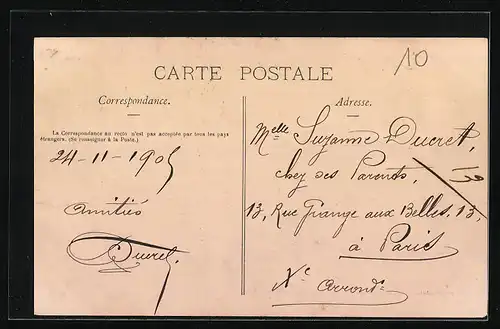 10
CARTE POSTALE
Correspondance.
La Correspondance au recto n'est pas acceptée par tous les pays
étrangers. (Se renseigner à la Poste.)
24-11-1905
Amitiés
Ducret
Adresse.
Melle Suzanne Ducret,
chez ses Parents,
13, Rue Grange aux Belles, 13,
à Paris
Xe Arrondt
13